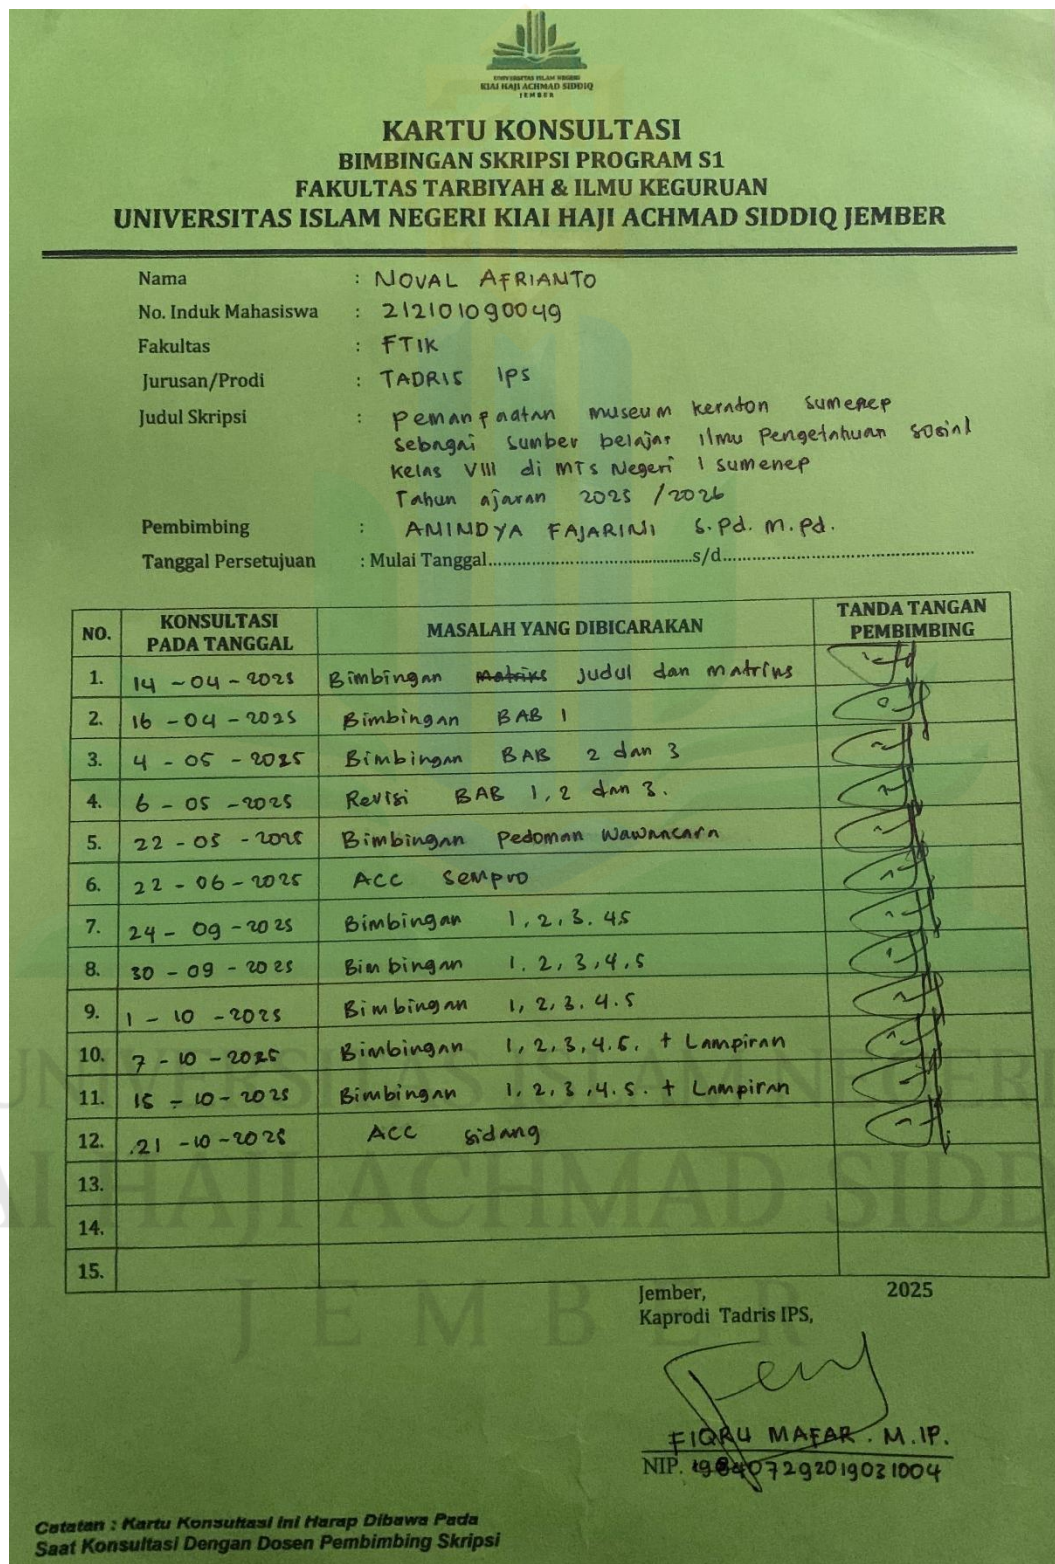 UNIVERSITAS ISLAM NEGERI
KIAI HAJI ACHMAD SIDDIQ
JEMBER
KARTU KONSULTASI
BIMBINGAN SKRIPSI PROGRAM S1
FAKULTAS TARBIYAH & ILMU KEGURUAN
UNIVERSITAS ISLAM NEGERI KIAI HAJI ACHMAD SIDDIQ JEMBER
Nama : NOVAL AFRIANTO
No. Induk Mahasiswa : 212101090049
Fakultas : FTIK
Jurusan/Prodi : TADRIS IPS
Judul Skripsi : Pemanfaatan museum keraton Sumenep
Sebagai Sumber belajar Ilmu Pengetahuan Sosial
Kelas VIII di MTs Negeri 1 Sumenep
Tahun ajaran 2025 / 2026
Pembimbing : ANINDYA FAJARINI S.Pd. M.Pd.
Tanggal Persetujuan : Mulai Tanggal...............................................s/d....................................................
NO. KONSULTASI PADA TANGGAL MASALAH YANG DIBICARAKAN TANDA TANGAN PEMBIMBING
1. 14 - 04 - 2025 Bimbingan Matriks Judul dan Matriks
2. 16 - 04 - 2025 Bimbingan BAB 1
3. 4 - 05 - 2025 Bimbingan BAB 2 dan 3
4. 6 - 05 - 2025 Revisi BAB 1, 2 dan 3.
5. 22 - 05 - 2025 Bimbingan Pedoman Wawancara
6. 22 - 06 - 2025 ACC Sempro
7. 24 - 09 - 2025 Bimbingan 1, 2, 3. 4 5
8. 30 - 09 - 2025 Bimbingan 1. 2, 3, 4, 5
9. 1 - 10 - 2025 Bimbingan 1, 2, 3. 4. 5
10. 7 - 10 - 2025 Bimbingan 1, 2, 3, 4. 5. + Lampiran
11. 15 - 10 - 2025 Bimbingan 1, 2, 3, 4. 5. + Lampiran
12. 21 - 10 - 2025 ACC Sidang
13.
14.
15.
UNIVERSITAS ISLAM NEGERI
KIAI HAJI ACHMAD SIDD
JEMBER
Jember, 2025
Kaprodi Tadris IPS,
FIQRU MAFAR. M.IP.
NIP. 198407292019031004
Catatan : Kartu Konsultasi Ini Harap Dibawa Pada
Saat Konsultasi Dengan Dosen Pembimbing Skripsi